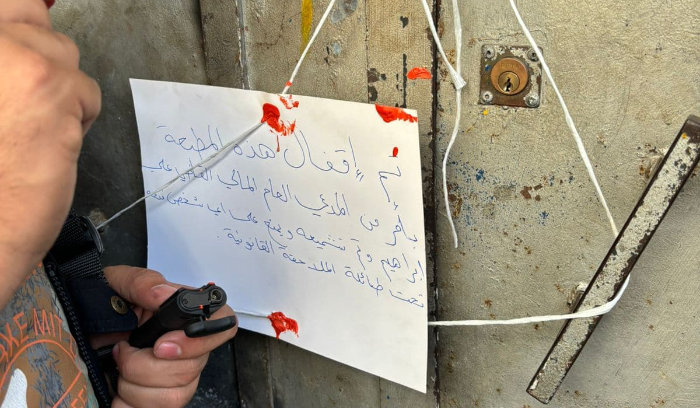 تم إقفال هذه المطبعة
بأمر من المدعي العام المالي القاضي علي
ابراهيم وتم تشميعه ويمنع على اي شخص
تحت طائلة الملاحقة القانونية.